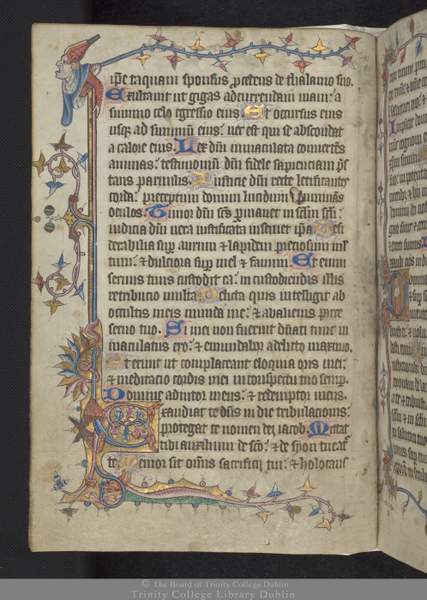 ip̄e taquam sponsus ꝓcedens de thalamo suo.
Exultauit ut gigas ad currendam uiam: a
summo celo egressio eius. Et occursus eius
usqꝫ ad summū eius: nec est qui se abscondat
a calore eius. Lex dn̄i inmaculata conuertēs
animas: testimoniū dn̄i fidele sapienciam p̄s
tans paruulis. Iusticie dn̄i recte letificantes
corda: preceptum domini lucidum illuminās
oculos. Timor dn̄i sc̄s ꝑmanet in sc̄lm sc̄li:
iudicia dn̄i uera iustificata in semet ip̄a. Desi
derabilia suꝑ aurum & lapidem preciosum ml
tum: & dulciora suꝑ mel & fauum. Et enim
seruus tuus custodit ea: in custodiendis illis
retribucio multa. Delicta quis intelligit ab
occultis meis munda me: & ab alienis parce
seruo tuo. Si mei non fuerint dn̄ati tunc in
maculatus ero: & emundabor a delicto maximo.
Et erunt ut complaceant eloquia oris mei:
& meditacio cordis mei in conspectu tuo semꝑ.
Domine adiutor meus: & redemptor meus.
Exaudiat te dn̄s in die tribulacionis:
protegat te nomen dei iacob. Mittat
tibi auxilium de sc̄o: & de syon tueat᷑
te. Memor sit om̄is sacrificii tui: & holocaus
© The Board of Trinity College Dublin
Trinity College Library Dublin